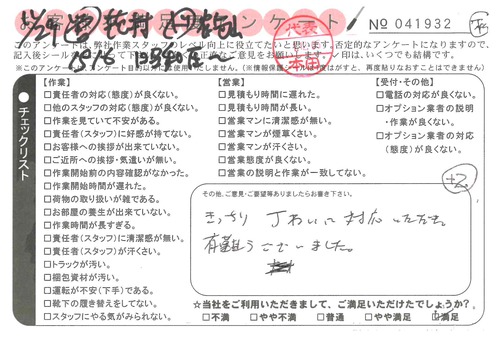 お客様 満足度アンケート No 041932
このアンケートは、弊社作業スタッフのレベル向上に役立てたいと思います。否定的なアンケートになりますので、
10/6
代表
本田
チェックリスト
【作業】
□責任者の対応(態度)が良くない。
□他のスタッフの対応(態度)が良くない。
□作業を見ていて不安がある。
□責任者(スタッフ)に好感が持てない。
□お客様への挨拶が出来ていない。
□ご近所への挨拶・気遣いが無い。
□作業開始前の内容確認がなかった。
□作業開始時間が遅れた。
□荷物の取り扱いが雑である。
□お部屋の養生が出来ていない。
□作業時間が長すぎる。
□責任者(スタッフ)に清潔感が無い。
□責任者(スタッフ)が汗くさい。
□トラックが汚い。
□梱包資材が汚い。
□運転が不安(下手)である。
□靴下の履き替えをしてない。
□スタッフにやる気がみられない。
【営業】
□見積もり時間に遅れた。
□見積もり時間が長い。
□営業マンに清潔感が無い。
□営業マンが煙草くさい。
□営業マンが汗くさい。
□営業態度が良くない。
□営業の説明と作業が一致してない。
【受付・その他】
□電話の対応が良くない。
□オプション業者の説明
・作業が良くない。
□オプション業者の対応
(態度)が良くない。
+2
その他、ご意見・ご要望等ありましたらお書き下さい。
きっちり 丁ねいに対応いただき
有難うございました。
☆当社をご利用いただきまして、ご満足いただけたでしょうか?
□不満 □やや不満 □普通 □やや満足 □満足